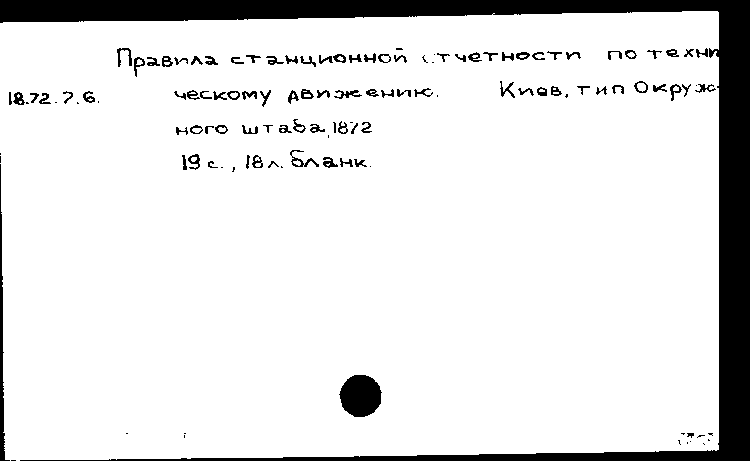 Правила станционной отчетности по техни
18.72.7.6. ческому движению. Киев, тип Окруж-
ного штаба, 1872
19 с., 18 л. бланк.